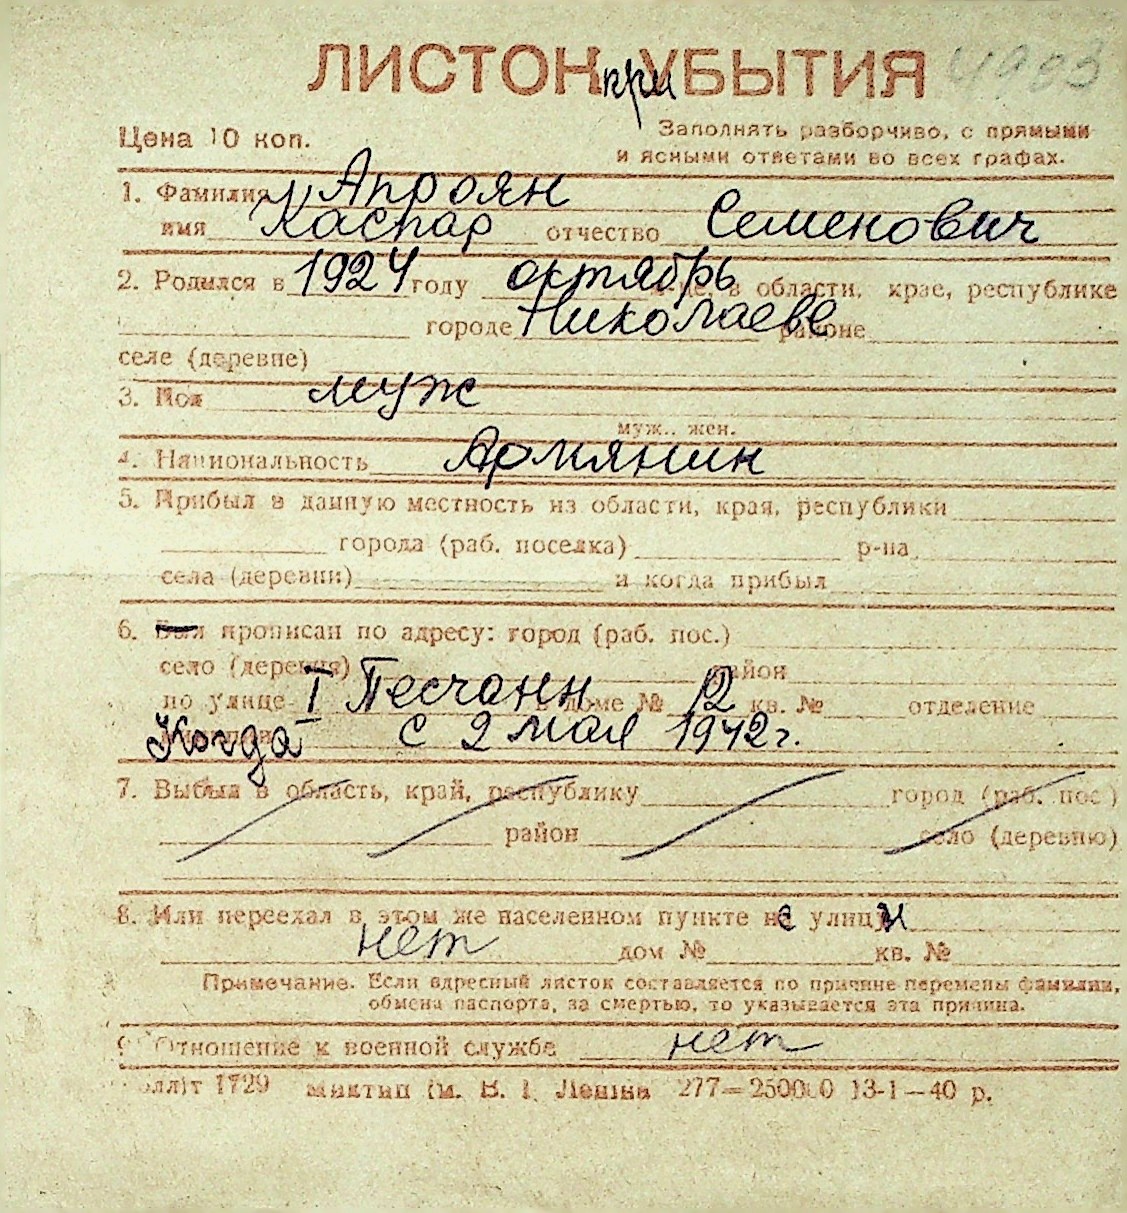 ЛИСТОК при УБЫТИЯ 4903
Цена 10 коп.
Заполнять разборчиво, с прямыми
и ясными ответами во всех графах.
1. Фамилия Апроян
имя Каспар отчество Семенович
2. Родился в 1924 году октябрь м-це, в области, крае, республике
городе Николаеве районе
селе (деревне)
3. Пол муж
муж., жен.
4. Национальность Армянин
5. Прибыл в данную местность из области, края, республики
города (раб. поселка) р-на
села (деревни) и когда прибыл
6. Был прописан по адресу: город (раб. пос.)
село (деревня) район
по улице I Песчанн в доме № 12 кв. № отделение
Когда с 2 мая 1942 г.
7. Выбыл в область, край, республику город (раб. пос.)
район село (деревню)
8. Или переехал в этом же населенном пункте не улицы
нет дом № кв. №
Примечание. Если адресный листок составляется по причине перемены фамилии,
обмена паспорта, за смертью, то указывается эта причина.
9. Отношение к военной службе нет
1729 Леніна 277—250000 13-1—40 р.